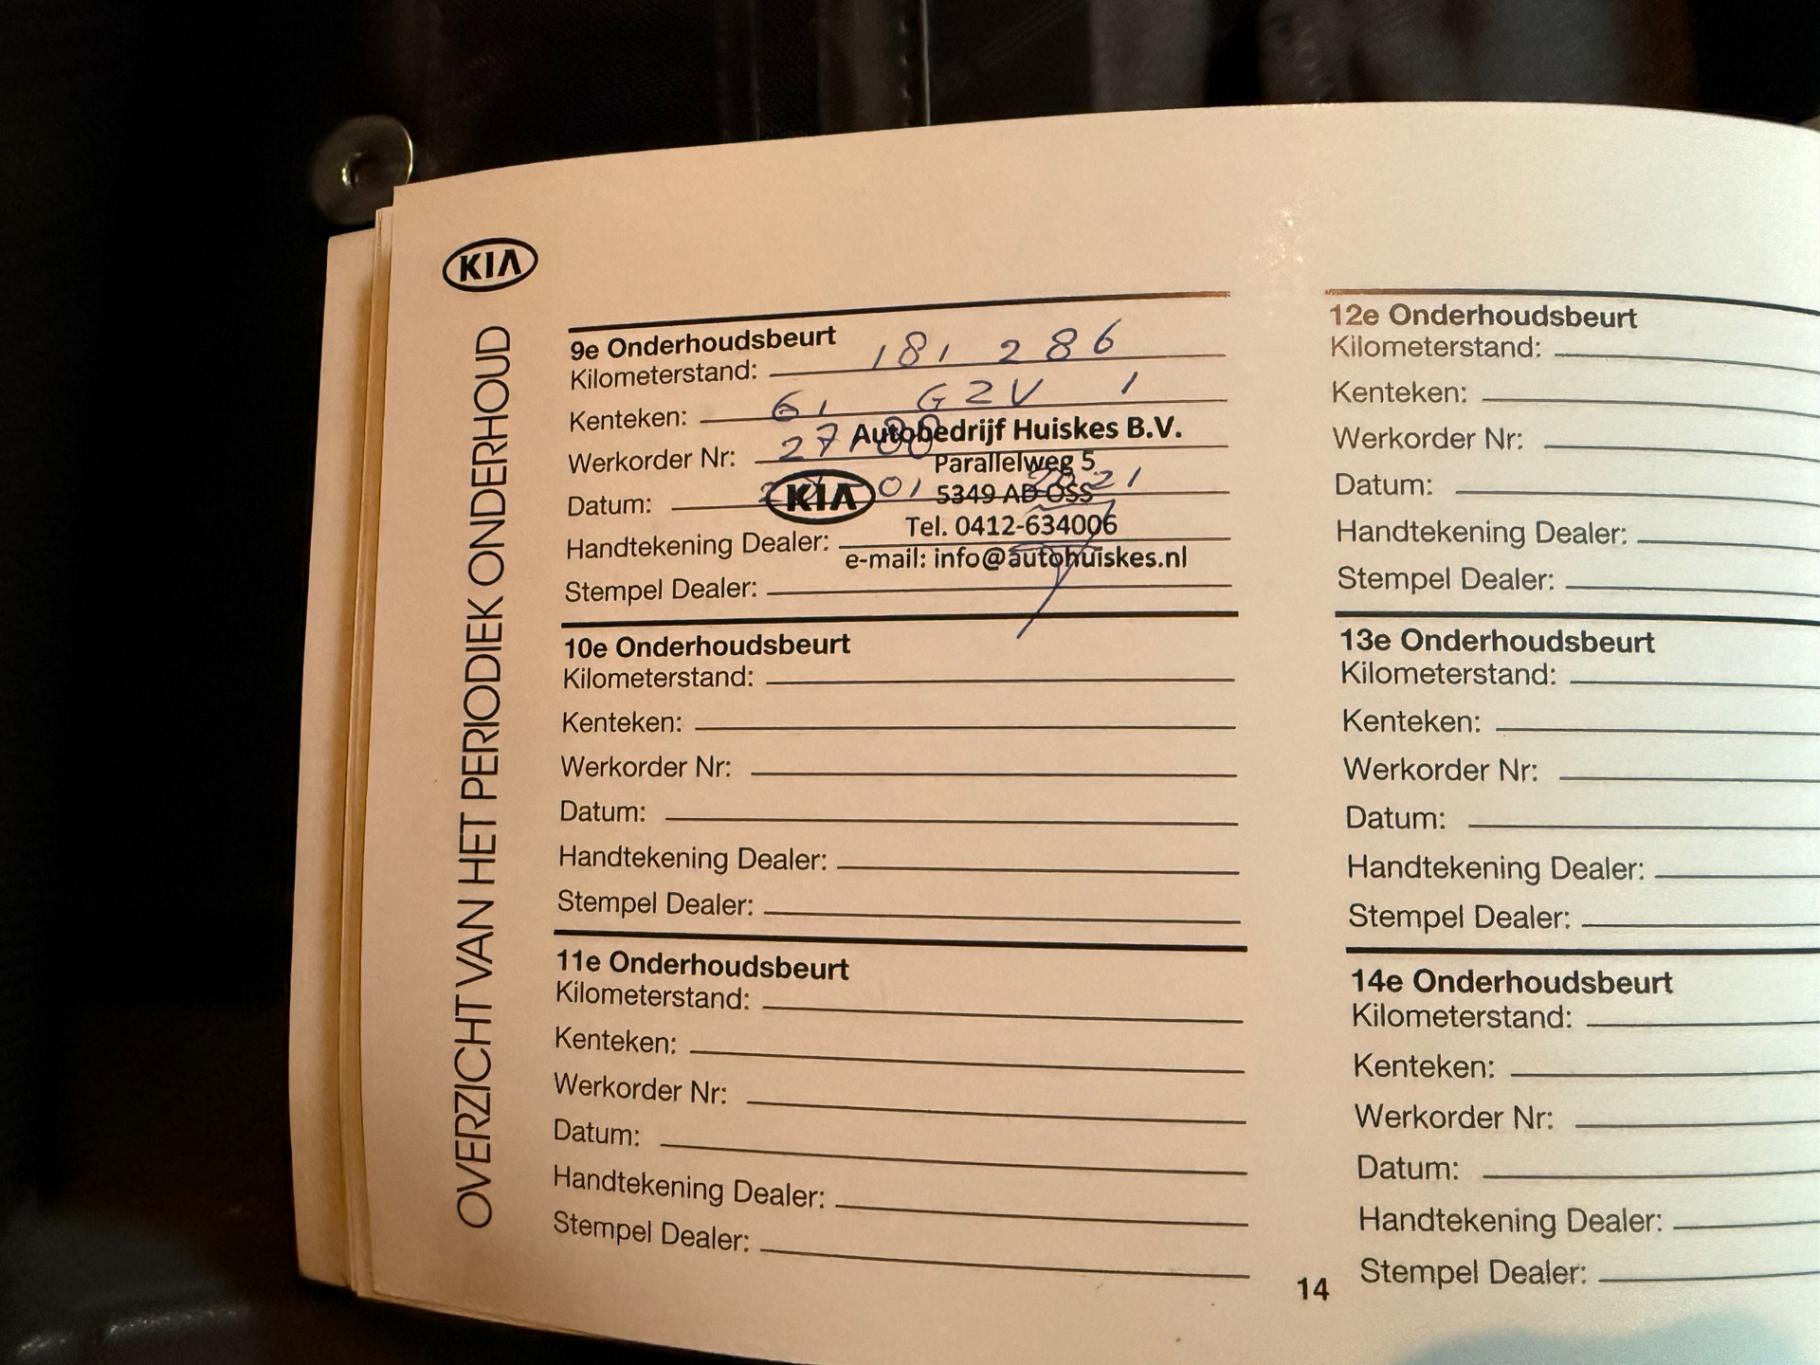 KIA
OVERZICHT VAN HET PERIODIEK ONDERHOUD
9e Onderhoudsbeurt
Kilometerstand: 181 286
Kenteken: 61 GZV 1
Werkorder Nr: 27
Autobedrijf Huiskes B.V.
Parallelweg 5
Datum: 01 2021
KIA
5349 AD OSS
Tel. 0412-634006
Handtekening Dealer:
e-mail: info@autohuiskes.nl
Stempel Dealer:
10e Onderhoudsbeurt
Kilometerstand:
Kenteken:
Werkorder Nr:
Datum:
Handtekening Dealer:
Stempel Dealer:
11e Onderhoudsbeurt
Kilometerstand:
Kenteken:
Werkorder Nr:
Datum:
Handtekening Dealer:
Stempel Dealer:
12e Onderhoudsbeurt
Kilometerstand:
Kenteken:
Werkorder Nr:
Datum:
Handtekening Dealer:
Stempel Dealer:
13e Onderhoudsbeurt
Kilometerstand:
Kenteken:
Werkorder Nr:
Datum:
Handtekening Dealer:
Stempel Dealer:
14e Onderhoudsbeurt
Kilometerstand:
Kenteken:
Werkorder Nr:
Datum:
Handtekening Dealer:
Stempel Dealer:
14